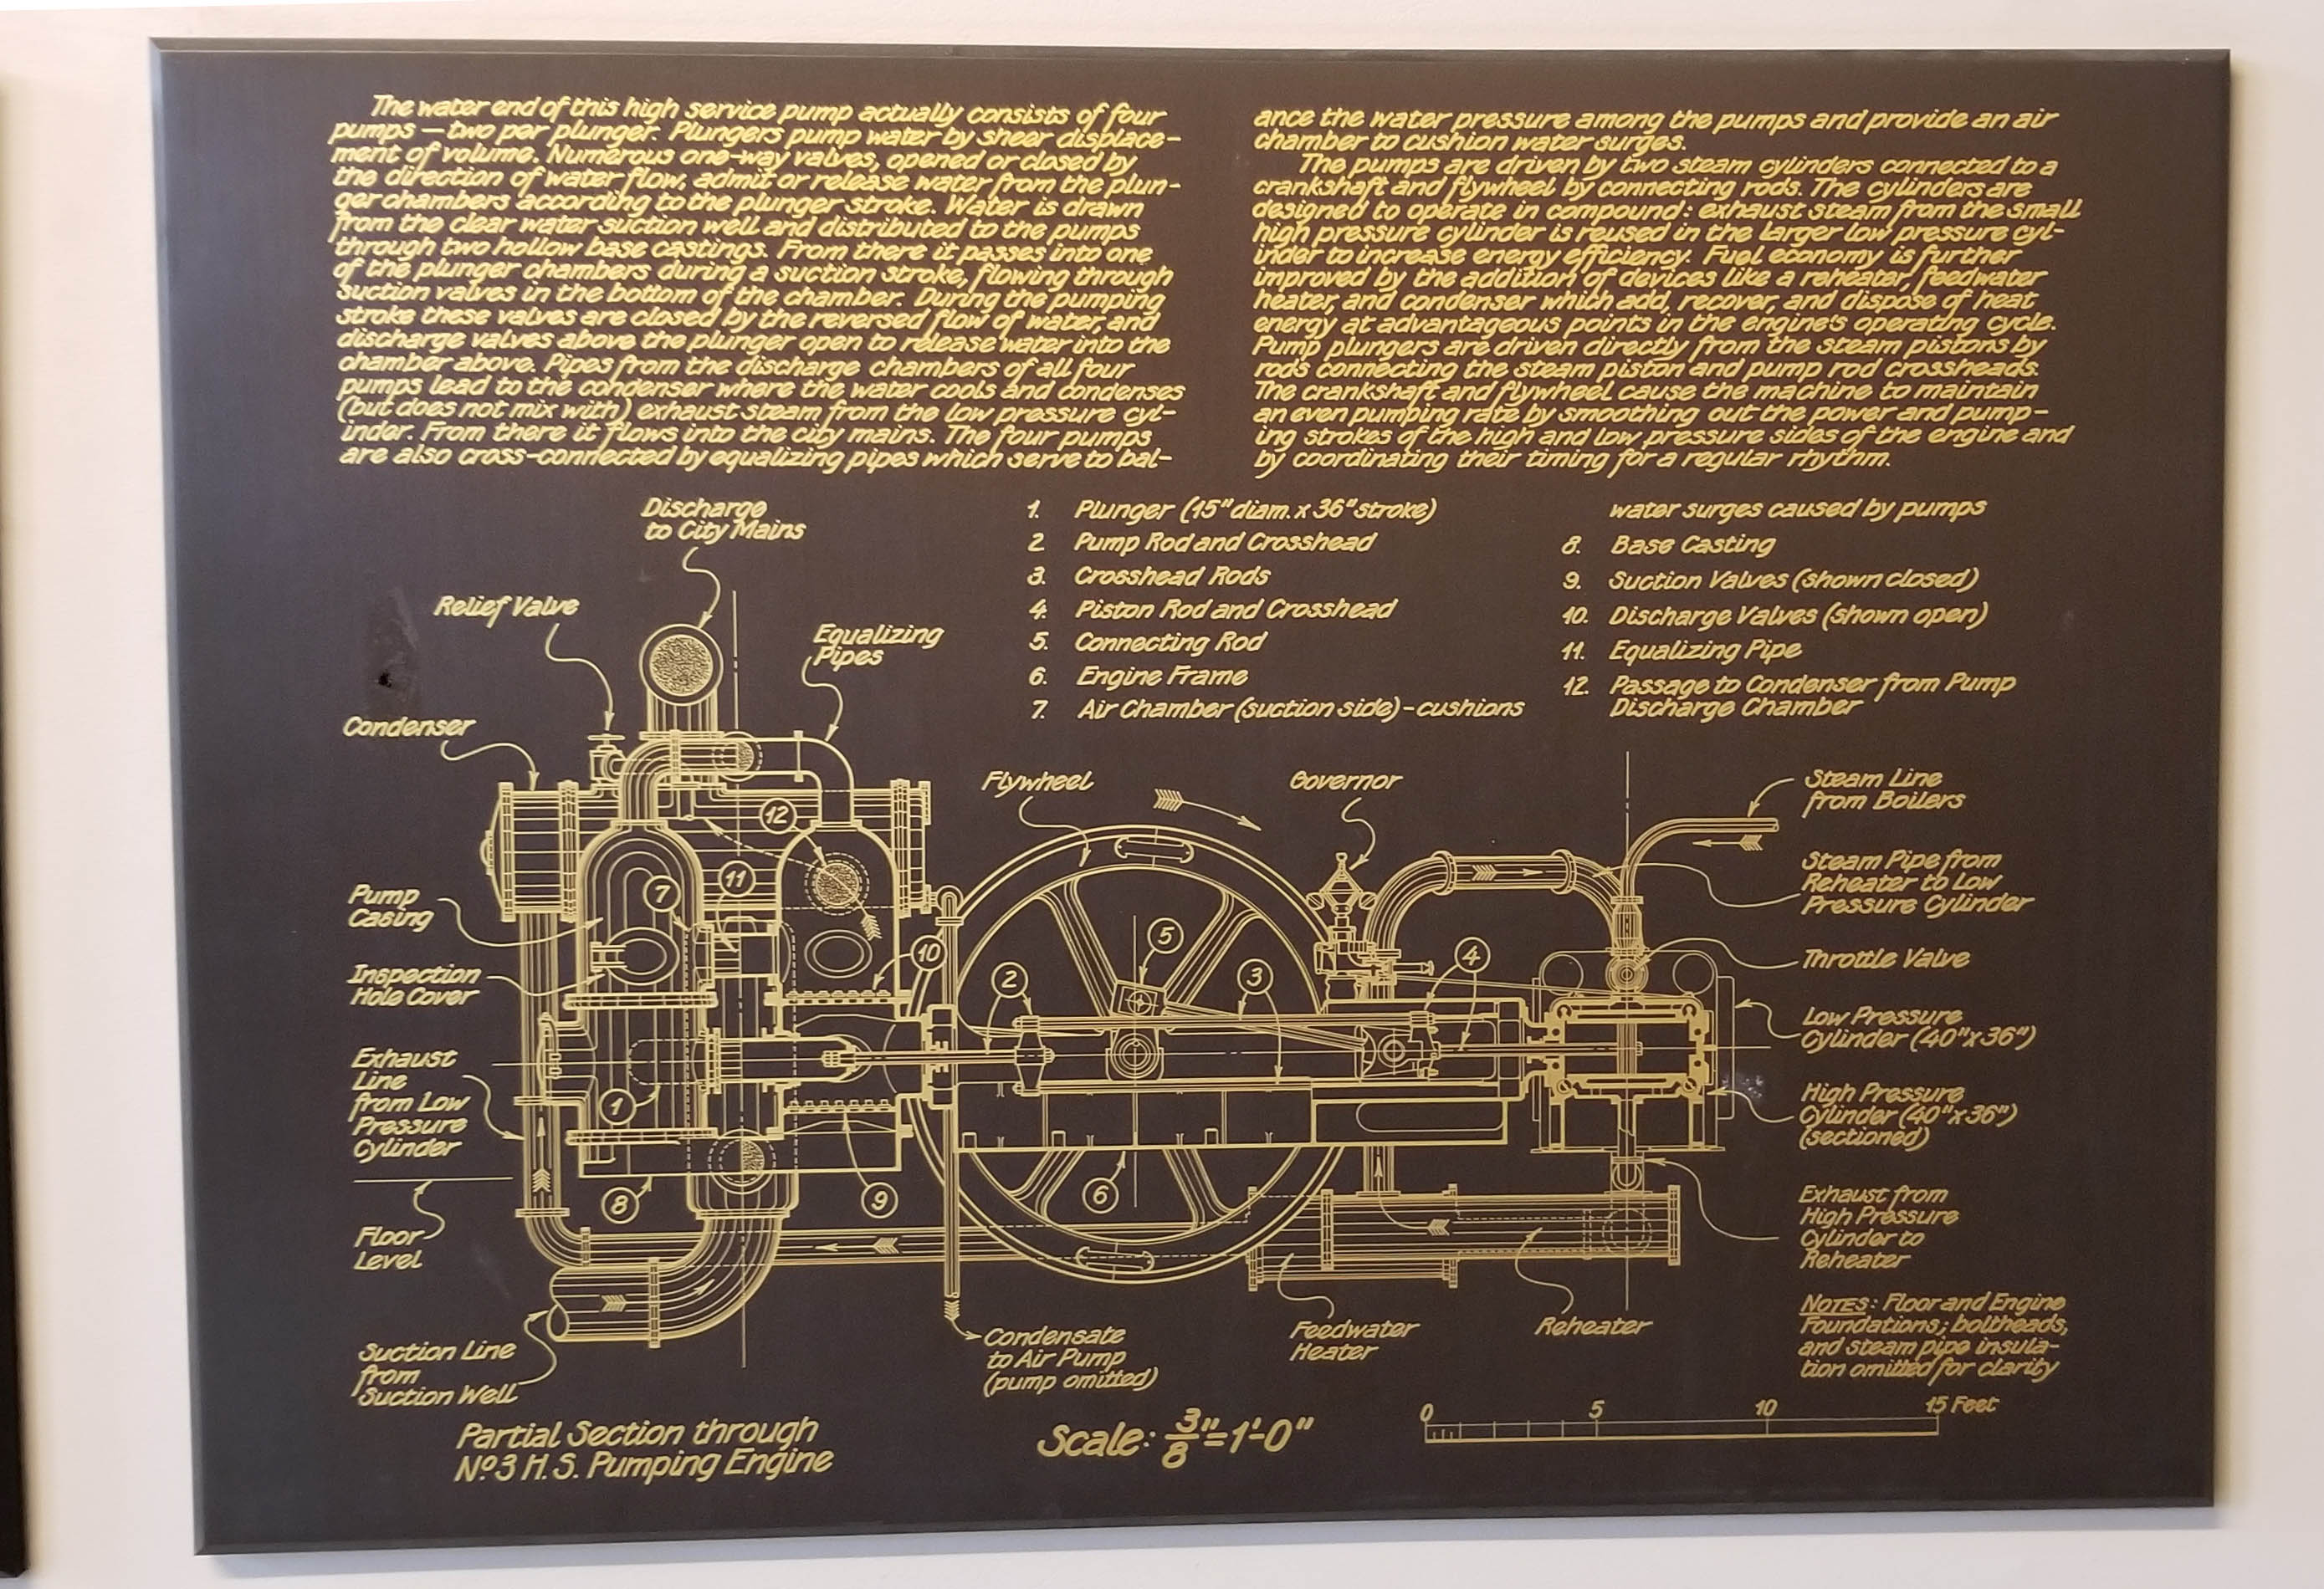 The water end of this high service pump actually consists of four
pumps – two per plunger. Plungers pump water by sheer displace-
ment of volume. Numerous one-way valves, opened or closed by
the direction of water flow, admit or release water from the plun-
ger chambers according to the plunger stroke. Water is drawn
from the clear water suction well and distributed to the pumps
through two hollow base castings. From there it passes into one
of the plunger chambers during a suction stroke, flowing through
suction valves in the bottom of the chamber. During the pumping
stroke these valves are closed by the reversed flow of water, and
discharge valves above the plunger open to release water into the
chamber above. Pipes from the discharge chambers of all four
pumps lead to the condenser where the water cools and condenses
(but does not mix with) exhaust steam from the low pressure cyl-
inder. From there it flows into the city mains. The four pumps
are also cross-connected by equalizing pipes which serve to bal-
ance the water pressure among the pumps and provide an air
chamber to cushion water surges.
The pumps are driven by two steam cylinders connected to a
crankshaft and flywheel by connecting rods. The cylinders are
designed to operate in compound: exhaust steam from the small
high pressure cylinder is reused in the larger low pressure cyl-
inder to increase energy efficiency. Fuel economy is further
improved by the addition of devices like a reheater, feedwater
heater, and condenser which add, recover, and dispose of heat
energy at advantageous points in the engine's operating cycle.
Pump plungers are driven directly from the steam pistons by
rods connecting the steam piston and pump rod crossheads.
The crankshaft and flywheel cause the machine to maintain
an even pumping rate by smoothing out the power and pump-
ing strokes of the high and low pressure sides of the engine and
by coordinating their timing for a regular rhythm.
1. Plunger (15" diam. x 36" stroke)
2 Pump Rod and Crosshead
3. Crosshead Rods
4. Piston Rod and Crosshead
5. Connecting Rod
6. Engine Frame
7. Air Chamber (suction side) – cushions
water surges caused by pumps
8. Base Casting
9. Suction Valves (shown closed)
10. Discharge Valves (shown open)
11. Equalizing Pipe
12. Passage to Condenser from Pump
Discharge Chamber
Discharge
to City Mains
Relief Valve
Equalizing
Pipes
Condenser
Flywheel
Governor
Steam Line
from Boilers
Steam Pipe from
Reheater to Low
Pressure Cylinder
Pump
Casing
Throttle Valve
Inspection
Hole Cover
Low Pressure
Cylinder (40"x36")
Exhaust
Line
from Low
Pressure
Cylinder
High Pressure
Cylinder (40"x36")
(sectioned)
12
7
11
5
10
2
3
4
1
8
9
6
Floor
Level
Exhaust from
High Pressure
Cylinder to
Reheater
Suction Line
from
Suction Well
Condensate
to Air Pump
(pump omitted)
Feedwater
Heater
Reheater
NOTES: Floor and Engine
Foundations; boltheads,
and steam pipe insula-
tion omitted for clarity
Partial Section through
Nº3 H.S. Pumping Engine
Scale: 3/8"=1'-0"
0 5 10 15 Feet